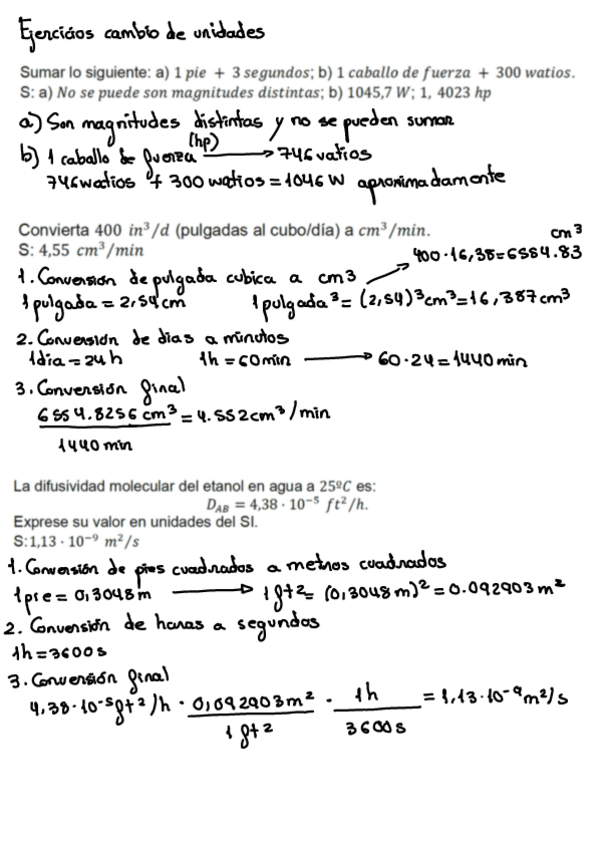 Ejercicios cambio de unidades
Sumar lo siguiente: a) 1 pie + 3 segundos; b) 1 caballo de fuerza + 300 watios.
S: a) No se puede son magnitudes distintas; b) 1045,7 W; 1, 4023 hp
a) Son magnitudes distintas y no se pueden sumar
(hp)
b) 1 caballo de fuerza → 746 vatios
746 watios + 300 watios = 1046 W aproximadamente
Convierta 400 in³/d (pulgadas al cubo/día) a cm³/min.
S: 4,55 cm³/min
cm³
400·16,38=6554.83
1. Conversión de pulgada cubica a cm3
1 pulgada = 2,54 cm 1 pulgada³ = (2,54)³cm³=16,387cm³
2. Conversión de dias a minutos
1dia = 24 h 1h = 60min → 60·24=1440 min
3. Conversión final
6554.8256 cm³ = 4.552cm³/min
1440 min
La difusividad molecular del etanol en agua a 25ºC es:
D_AB = 4,38 · 10⁻⁵ ft²/h.
Exprese su valor en unidades del SI.
S:1,13 · 10⁻⁹ m²/s
1. Conversión de pies cuadrados a metros cuadrados
1 pie = 0,3048m → 1ft2= (0,3048m)²=0.092903m²
2. Conversión de horas a segundos
1h = 3600s
3. Conversión final
4,38·10⁻⁵ft²/h · 0,092903m² · 1h = 1,13·10⁻⁹m²/s
1 ft2 3600s